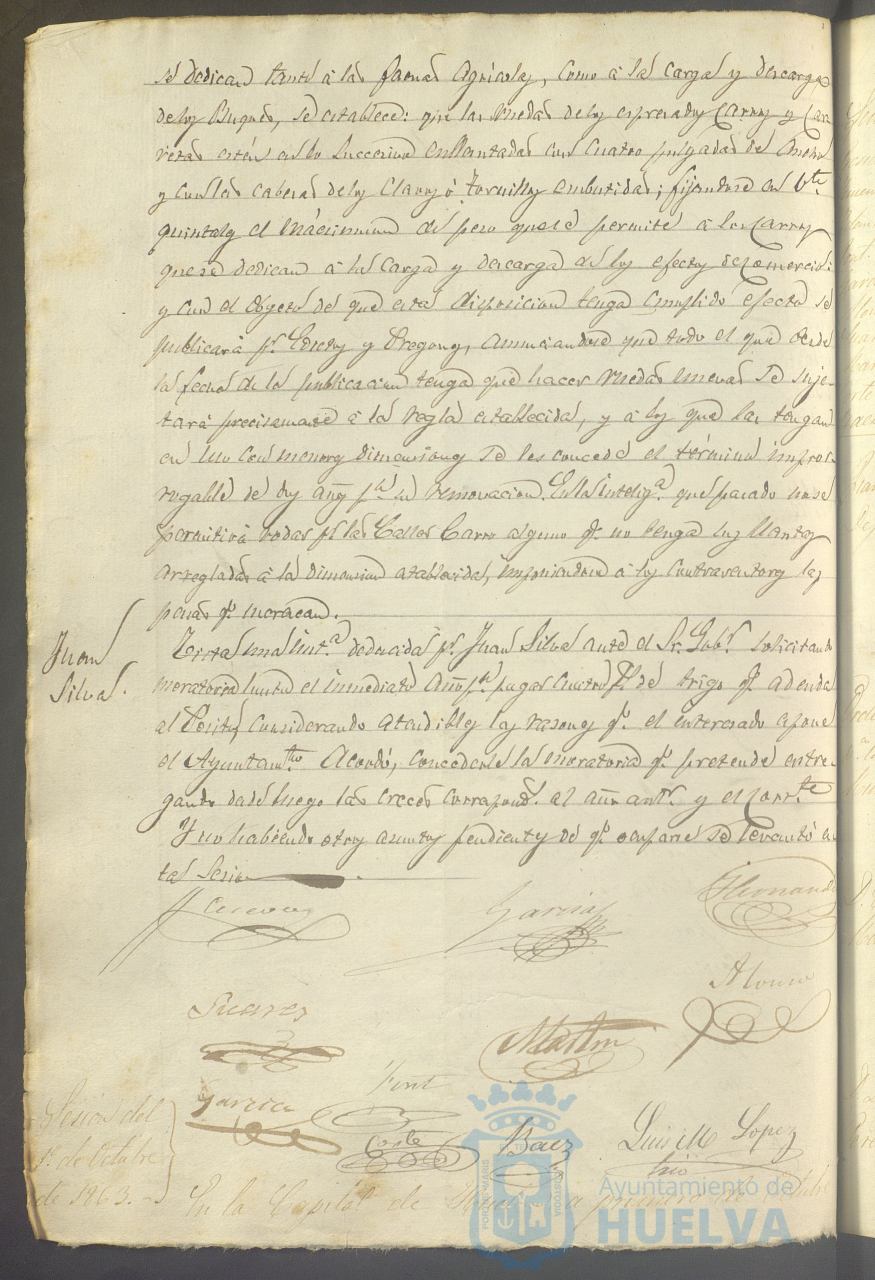 se dedican tanto á las faenas Agricolas, como á la carga y descarga
de los Buques, se establece: que las ruedas de los espresados Carros y Car
retas estén en lo succesivo enllantadas con cuatro pulgadas de
y con las cabezas de los Clavos ó tornillos embutidas; fijandose en bte
quintales el máccimum del peso que se permite á los Carros
que se dedican á la carga y descarga de los efectos de Comercio:
y con el objeto de que esta disposicion tenga cumplido efecto se
publicará pr. Edictos y Pregones, anunciandose que todo el que desde
la fecha de la publicacion tenga que hacer ruedas nuevas se suje-
tará precisamte á la regla establecida, y á los que las tengan
en uso con menores dimensiones se les concede el término impror
rogable de dos años pa. su renovacion. En la inteliga. que pasado no se
permitirá rodar pr. las Calles Carro alguno qe. no tenga las llantas
arregladas á la dimension establecida, imponiendose á los contraventores las
penas qe. merezcan.
Juan
Silva.
Vista una inst.a deducida pr. Juan Silva ante el Sr. Gobr. solicitando
moratoria hasta el inmediato Año pa. pagar cuatro fs. de trigo qe. adeuda
al Posito, considerando atendibles las razones qe. el interesado espone
el Ayuntamto. Acordó, concederle la moratoria qe. pretende entre-
gando desde luego las creces correspond. al año antr. y el corrte
Y no habiendo otros asuntos pendientes de qe. ocuparse se levantó es
ta Sesion
Garcia
Hernandz
Alonso
Suarez
Martin
Font
Garcia
Coste
Baez
Luis M Lopez
Srio
Sesion del
1º de Octubre
de 1863.
En la Capital de Huelva a primero de Octubre
PORTUS MARIS
CUSTODIA
Ayuntamiento de
HUELVA